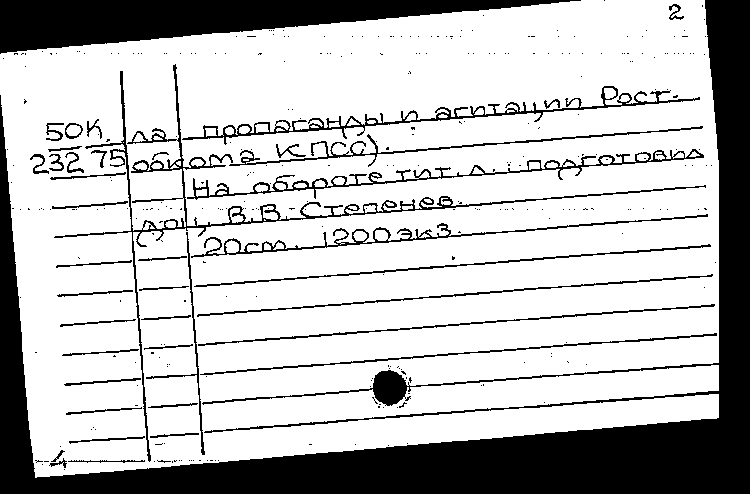 2
50К. ла пропаганды и агитации Рост.
232 75 обкома КПСС).
На обороте тит. л.: подготовил
доц. В.В. Степенев.
20см. 1200экз.
4